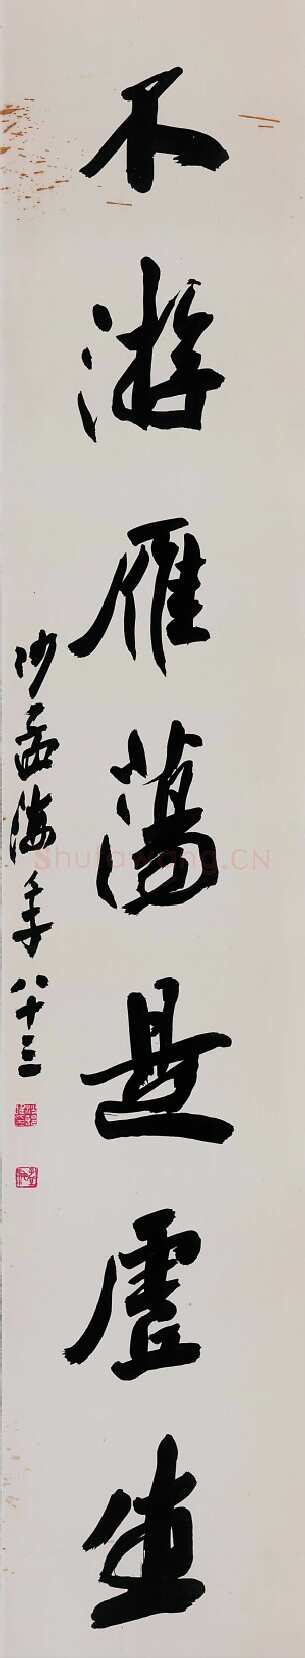 不游雁蕩是虛生
沙孟海年八十三
shufawang.CN